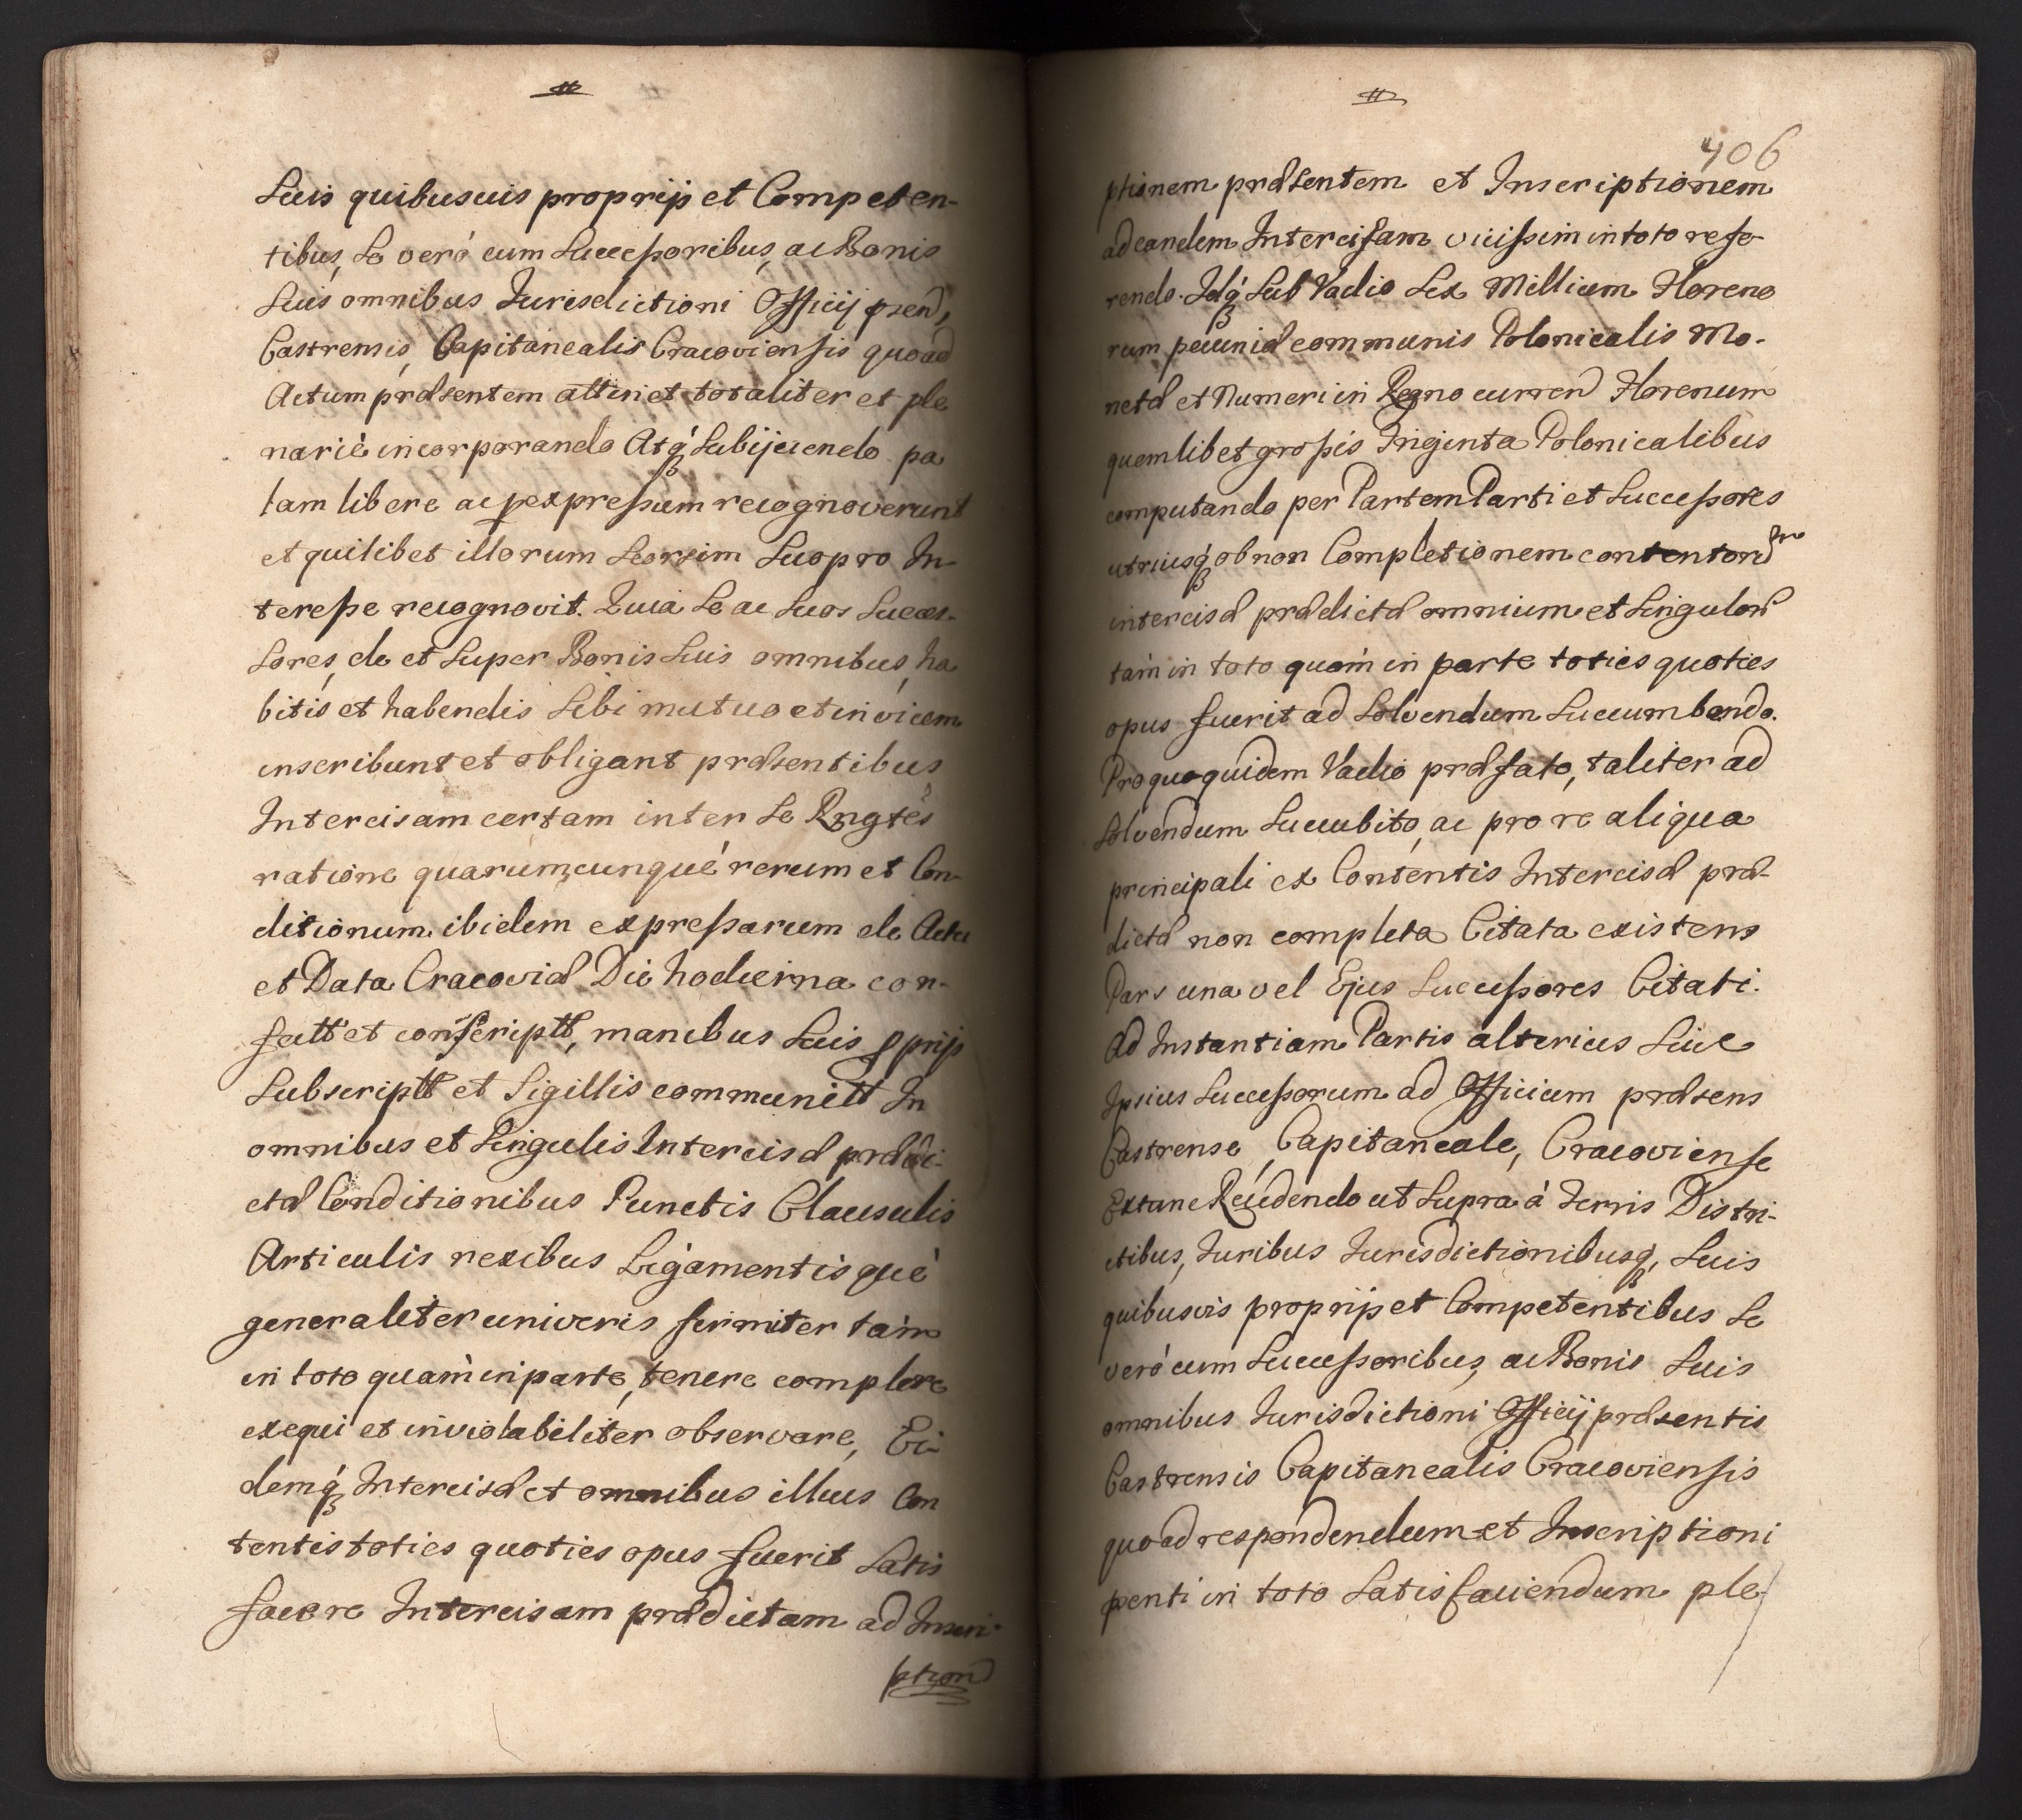 Suis quibusuis proprijs et Competen-
tibus, Se verò cum Successoribus, ac Bonis
Suis omnibus Iurisdictioni Officij pnend,
Castrensis, Capitanealis Cracoviensis quoad
Actum præsentem attinet totaliter et ple
nariè incorporando Atq́ Subijciendo pa
lam libere ac p expressum recognoverunt
et quilibet illorum Seorsim Suo pro In-
teresse recognovit. Quia Se ac Suos Succes-
sores, de et Super Bonis Suis omnibus, ha
bitis et habendis Sibi mutuo et invicem
inscribunt et obligant præsentibus
Intercisam certam inter Se Rngtes
ratione quarumcunquè rerum et Con-
ditionum ibidem expressarum de Actu
et Data Cracoviæ Die hodierna con-
fectt et conscriptt, manibus Suis pprijs
Subscriptt et Sigillis communitt In
omnibus et Singulis Intercisæ prædi-
ctæ Conditionibus Punctis Clausulis
Articulis nexibus Ligamentisquè
generaliter univeris firmiter tàm
in toto quàm in parte, tenere complere
exequi et inviolabiliter observare, Ei-
demq́ Intercisæ et omnibus illius Con
tentis toties quoties opus fuerit Satis
facere Intercisam prædictam ad Inscri-
ption
406
ptionem præsentem et Inscriptionem
ad eandem Intercisam vicissim in toto refe-
rendo. Idq́ Sub Vadio Sex Millium Floreno
rum pecuniæ communis Polonicalis Mo-
netæ et Numeri in Regno curren Florenum
quemlibet grossis Triginta Polonicalibus
computando per Partem Parti et Successores
utriusq́ ob non Completionem contentorū
intercisæ prædictæ omnium et Singulorū
tàm in toto quàm in parte toties quoties
opus fuerit ad Solvendum Succumbendo.
Pro quo quidem Vadio præfato, taliter ad
Solvendum Succubito, ac pro re aliqua
principali ex Contentis Intercisæ præ-
dictæ non completa Citata existens
Pars una vel Ejus Successores Citati.
Ad Instantiam Partis alterius Sive
Ipsius Successorum ad Officium præsens
Castrense, Capitaneale, Cracoviense
Extunc Recedendo ut Supra à Terris Distri-
ctibus, Iuribus Iurisdictionibusq́, Suis
quibusvis proprijs et Competentibus Se
verò cum Successoribus, ac Bonis Suis
omnibus Iurisdictioni Officij præsentis
Castrensis Capitanealis Cracoviensis
quoad respondendum et Inscriptioni
pnenti in toto Satisfaciendum ple